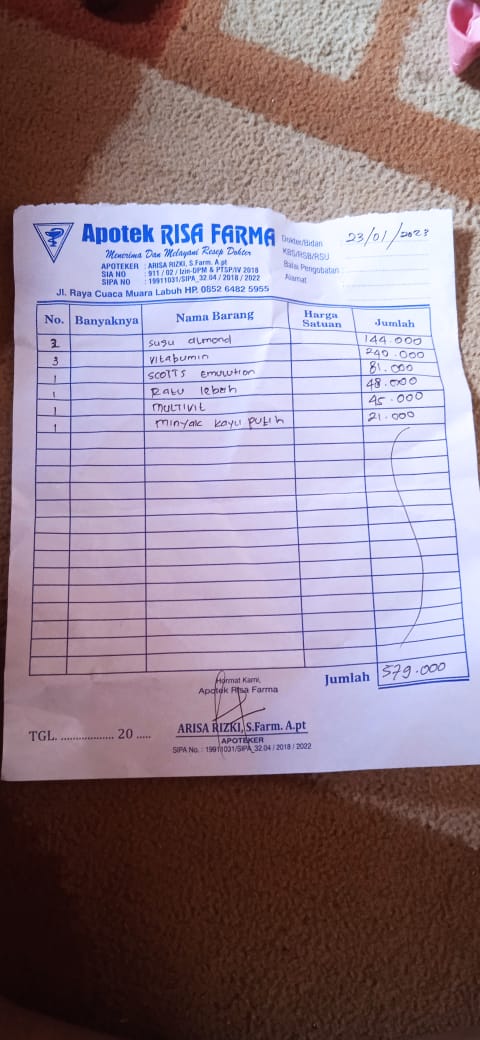 Apotek RISA FARMA
Menerima Dan Melayani Resep Dokter
APOTEKER : ARISA RIZKI, S.Farm. A.pt
SIA NO : 911 / 02 / Izin-DPM & PTSP/IV 2018
SIPA NO : 19911031/SIPA_32.04 / 2018 / 2022
Jl. Raya Cuaca Muara Labuh HP. 0852 6482 5955
Dokter/Bidan 23/01/2023
KBS/RSB/RSU
Balai Pengobatan
Alamat
No. Banyaknya Nama Barang Harga Satuan Jumlah
susu almond 144.000
3 Vitabumin 240.000
1 SCOTTS Emulution 81.000
1 Ratu lebah 48.000
1 multivit 45.000
1 minyak kayu putih 21.000
Jumlah 579.000
Hormat Kami,
Apotek Risa Farma
TGL. .................. 20 .....
ARISA RIZKI, S.Farm. A.pt
APOTEKER
SIPA No. : 19911031/SIPA_32.04 / 2018 / 2022